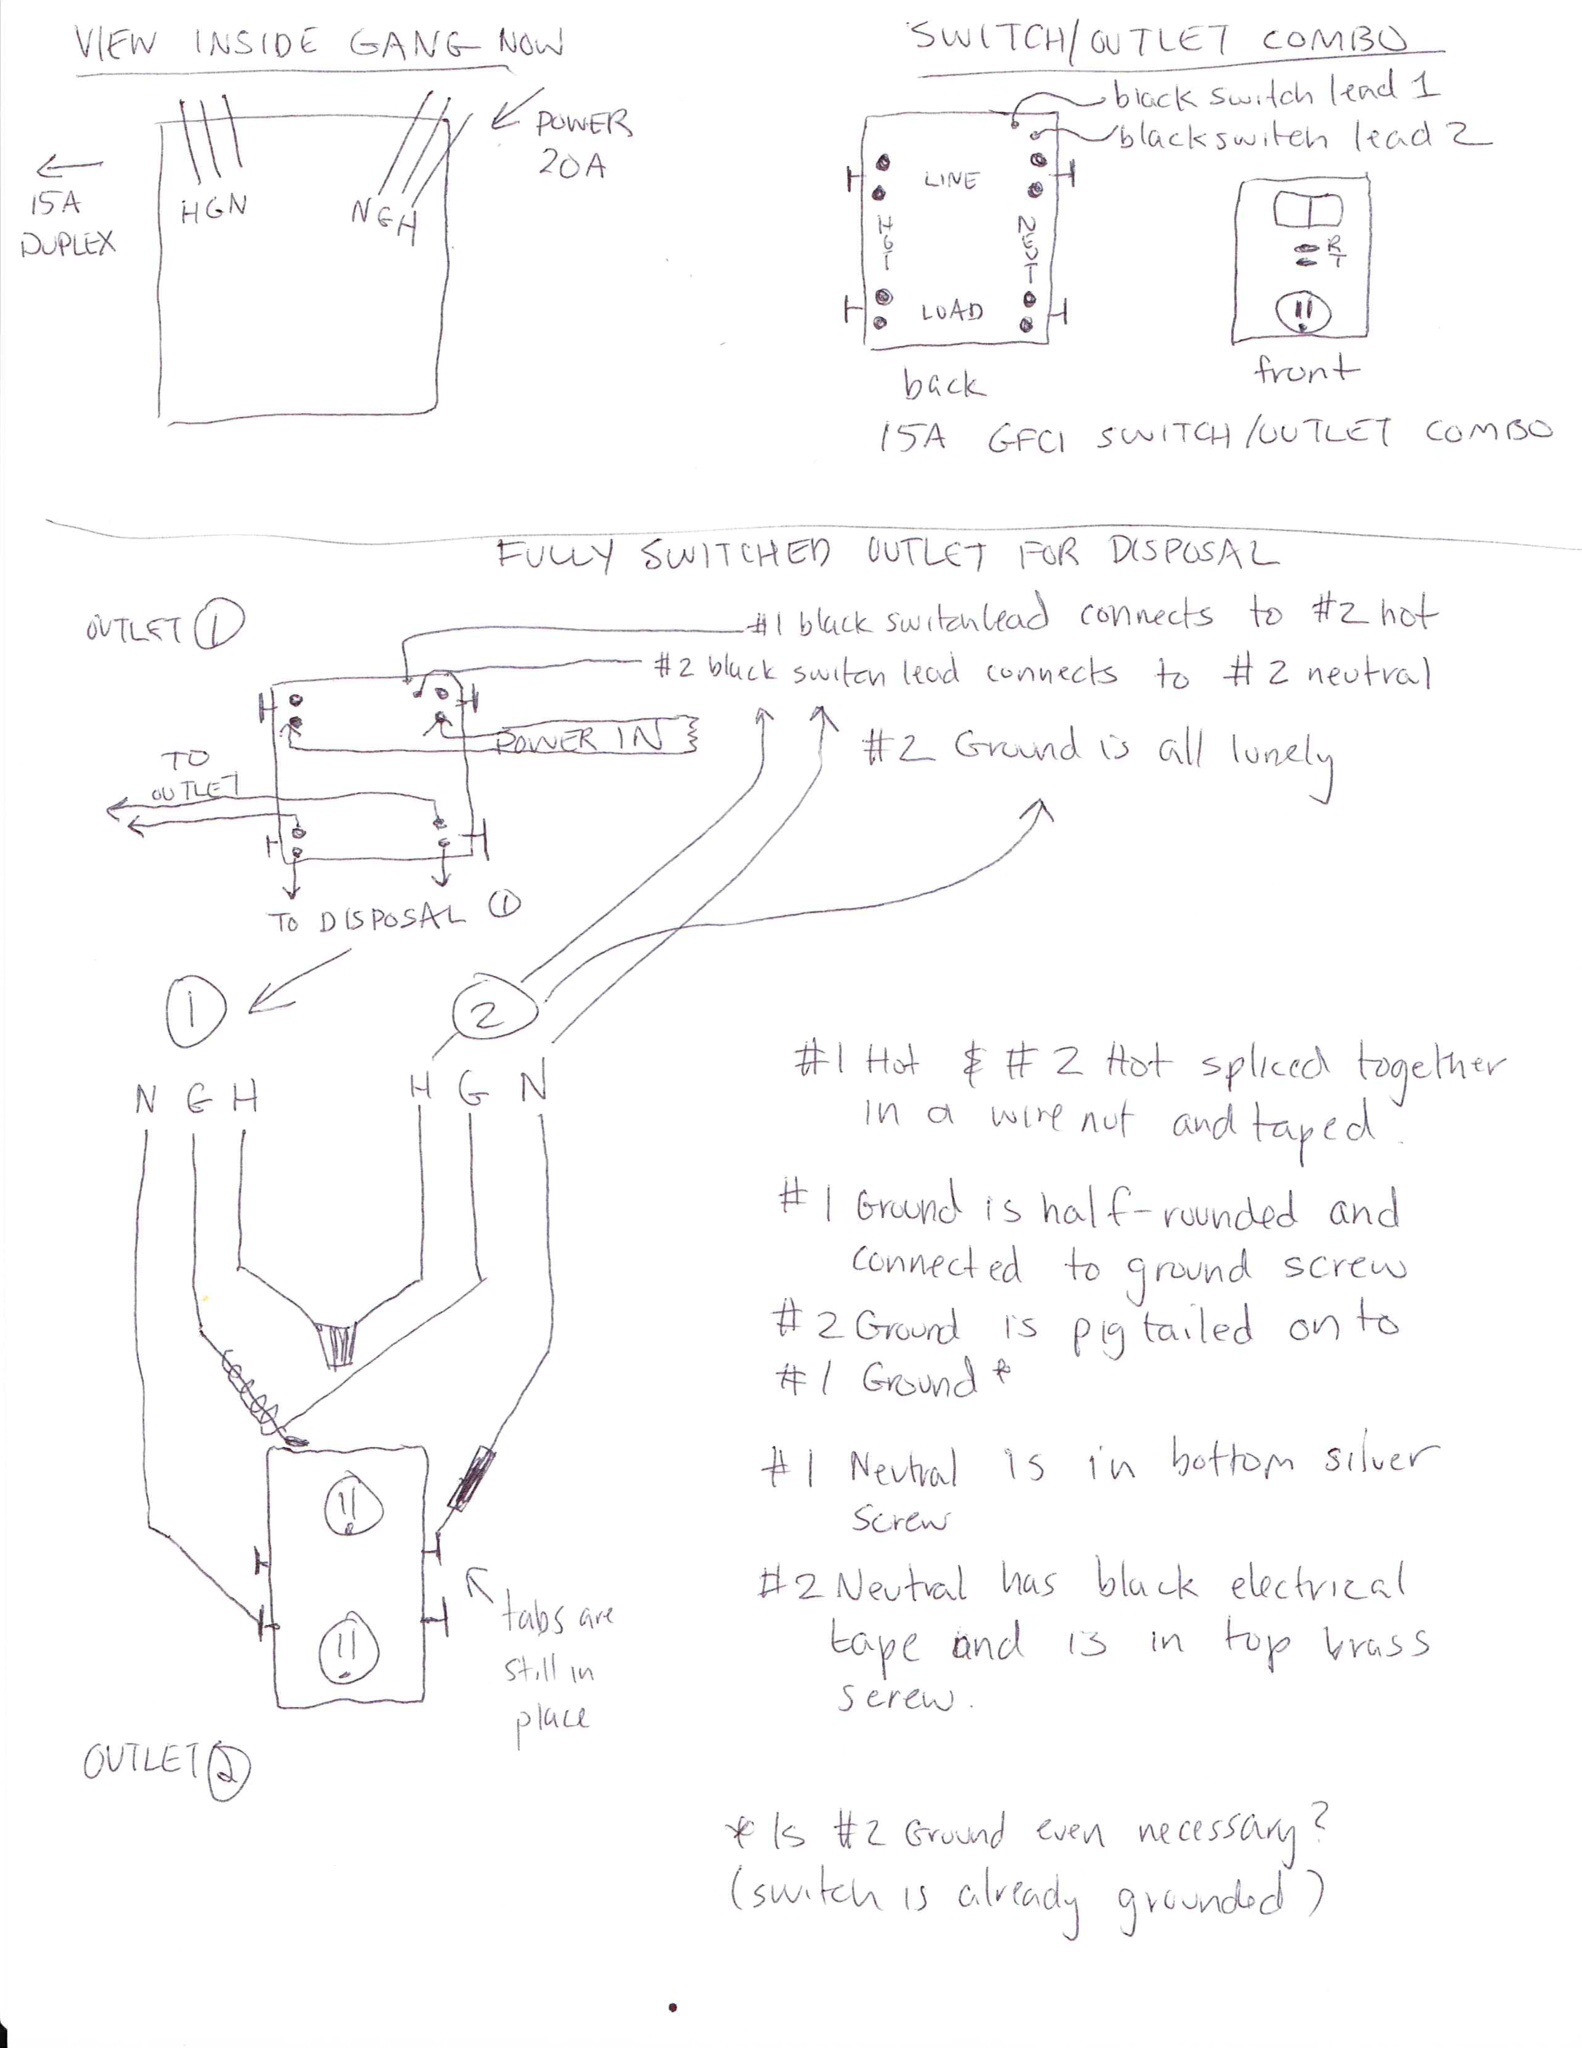 VIEW INSIDE GANG NOW
POWER
20A
15A
DUPLEX
H G N
N G H
SWITCH/OUTLET COMBO
black switch lead 1
black switch lead 2
LINE
HOT
NEUT
LOAD
back
R
T
front
15A GFCI SWITCH/OUTLET COMBO
FULLY SWITCHED OUTLET FOR DISPOSAL
OUTLET 1
#1 black switch lead connects to #2 hot
#2 black switch lead connects to #2 neutral
POWER IN
#2 Ground is all lonely
TO
OUTLET
TO DISPOSAL 1
1
2
N G H
H G N
#1 Hot & #2 Hot spliced together
in a wire nut and taped.
#1 Ground is half-rounded and
connected to ground screw
#2 Ground is pigtailed on to
#1 Ground *
#1 Neutral is in bottom silver
screw
#2 Neutral has black electrical
tape and is in top brass
screw.
tabs are
still in
place
OUTLET 2
* Is #2 Ground even necessary?
(switch is already grounded)